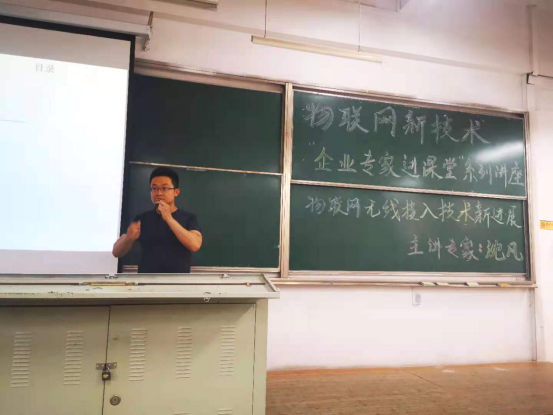 目录
物联网新技术
"企业专家进课堂"系列讲座
物联网无线接入技术新进展
主讲专家:鲍风